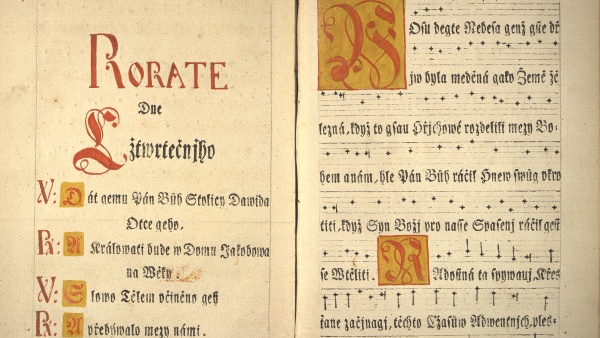 RORATE
Dne
Čtwrtečnjho
V: Dát gemu Pán Bůh Stolicy Dawida
Otce geho.
R: A Králowati bude w Domu Jakobowa
na Wěky
V: Slowo Tělem včiněno gest
R: A přebýwalo mezy námi.
ROsu degte Nebesa genž gste dř
jw byla měděná gako Země žě
lezná, když to gsau Hřjchowé rozdělili mezy Bo-
hem a nám, hle Pán Bůh ráčil Hněw swůg vkro
titi, když Syn Božj pro nasse Spasenj ráčil gest
se Wtěliti. RAdostná ta zpjwauj, Křes
tiané začjnagj, těchto Cžasůw Adwentnjch, ples-